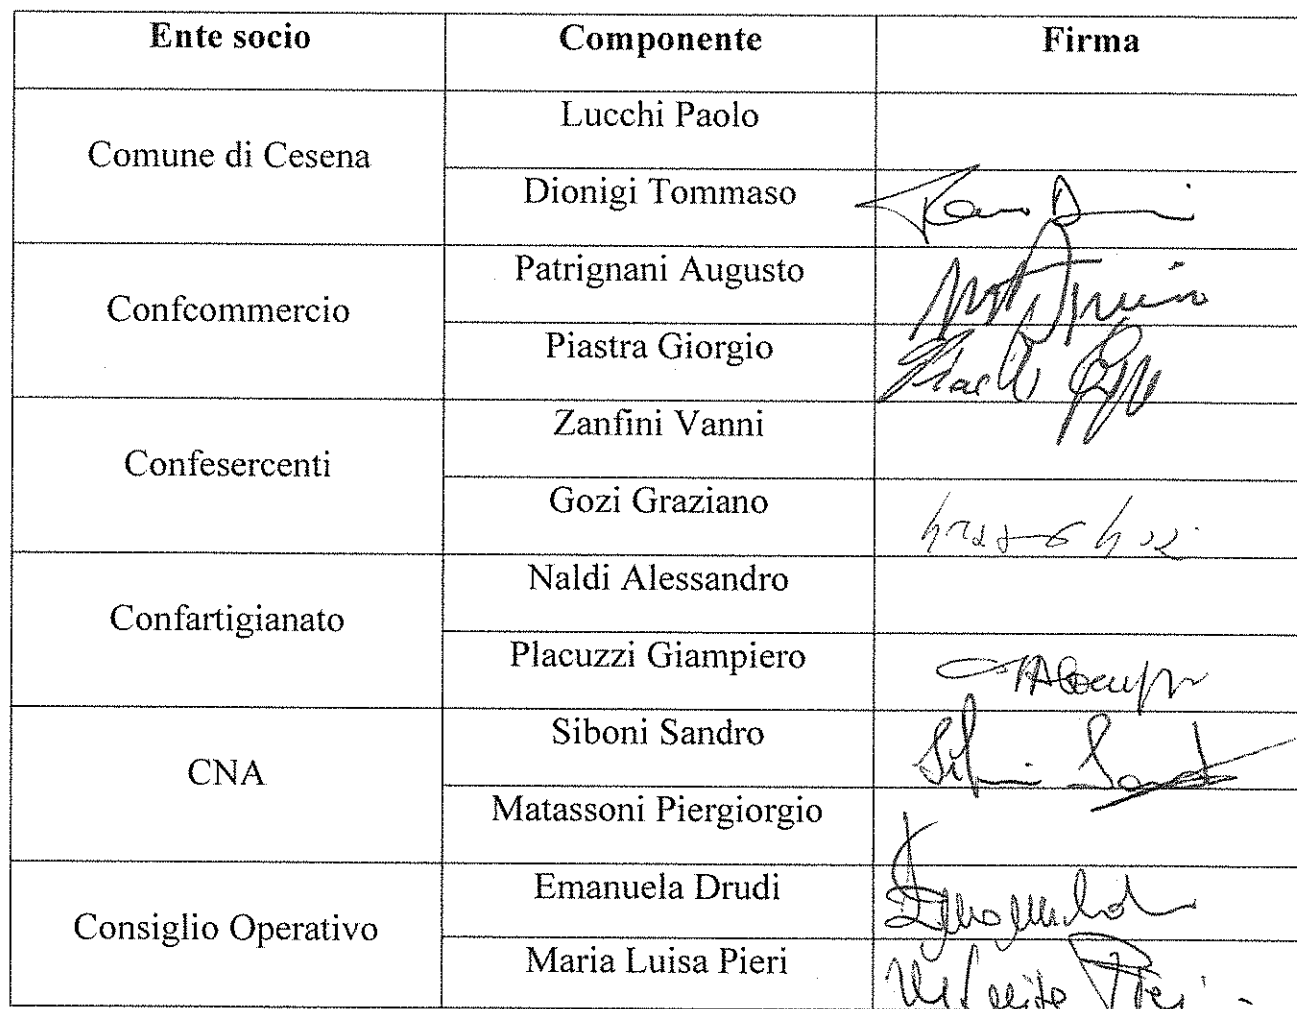 Ente socio Componente Firma
Comune di Cesena
Lucchi Paolo
Dionigi Tommaso
Confcommercio
Patrignani Augusto
Piastra Giorgio
Confesercenti
Zanfini Vanni
Gozi Graziano
Confartigianato
Naldi Alessandro
Placuzzi Giampiero
CNA
Siboni Sandro
Matassoni Piergiorgio
Consiglio Operativo
Emanuela Drudi
Maria Luisa Pieri